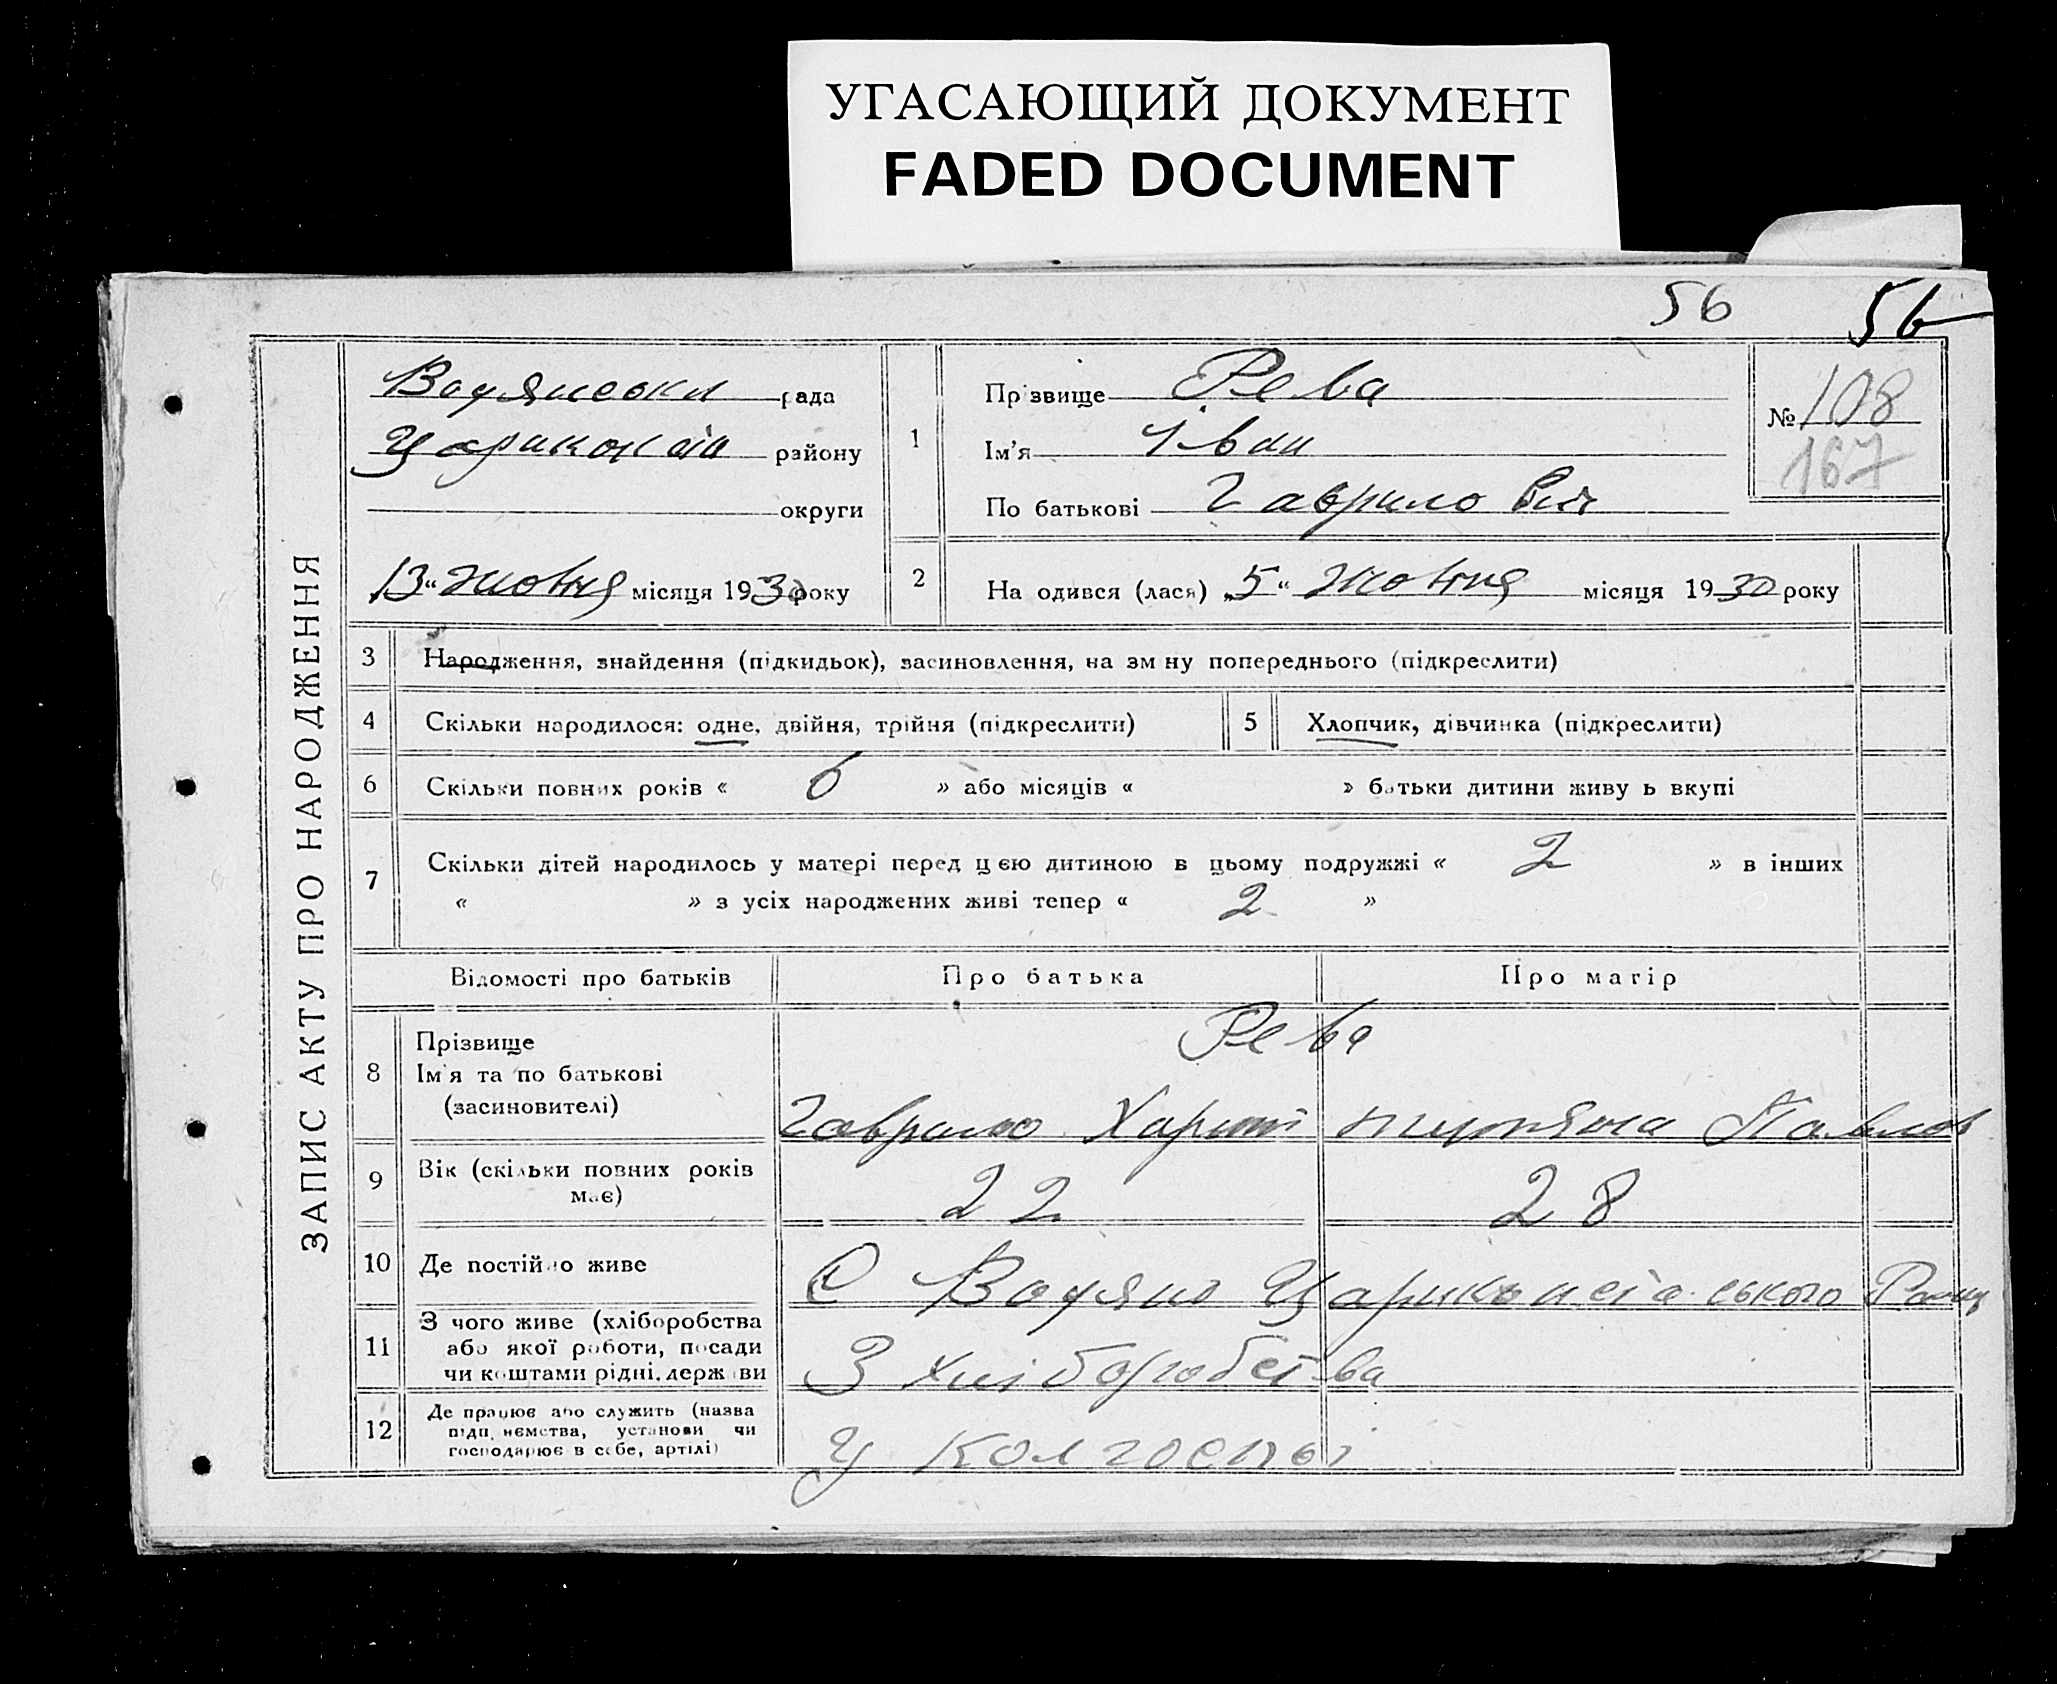 УГАСАЮЩИЙ ДОКУМЕНТ
FADED DOCUMENT
56 56
ЗАПИС АКТУ ПРО НАРОДЖЕННЯ
Водянська рада
району
округи
13 “ жовтня місяця 1930 року
1
Прізвище Рева
Ім’я Іван
По батькові Гаврилович
№ 108
167
2 На одився (лася) „ 5 “ жовтня місяця 1930 року
3 Народження, знайдення (підкидьок), засиновлення, на зм ну попереднього (підкреслити)
4 Скільки народилося: одне, двійня, трійня (підкреслити) 5 Хлопчик, дівчинка (підкреслити)
6 Скільки повних років « 6 » або місяців « » батьки дитини живу ь вкупі
7 Скільки дітей народилось у матері перед цєю дитиною в цьому подружжі « 2 » в інших
« » з усіх народжених живі тепер « 2 »
Відомості про батьків Про батька Про матір
8 Прізвище
Ім’я та по батькові
(засиновителі)
Рева
Гаврило Харит Павлов
9 Вік (скільки повних років
має)
22 28
10 Де постійно живе
С Водяно
11 З чого живе (хліборобства
або якої роботи, посади
чи коштами рідні, держави
З хліборобства
12 Де працює або служить (назва
підприємства, установи чи
господарює в себе, артілі)
У колгоспі